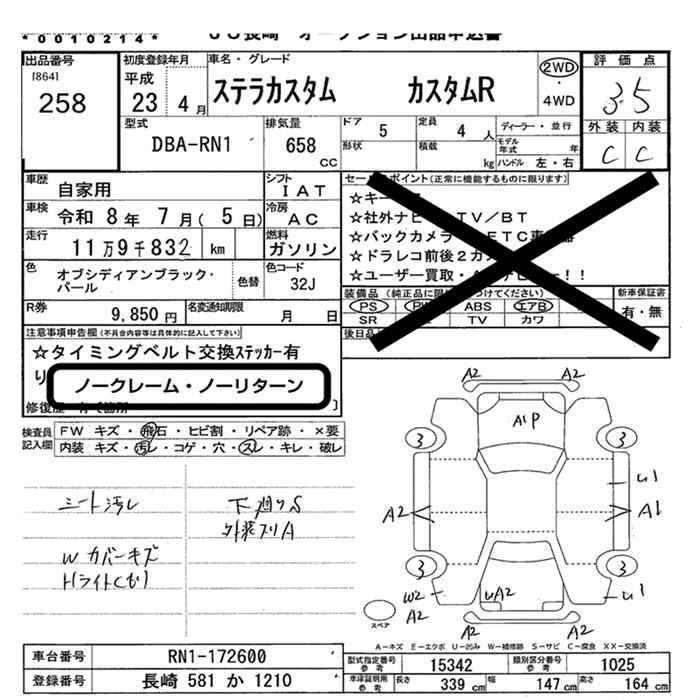 *0010214*
JU長崎 オークション出品申込書
出品番号
[864]
258
初度登録年月
平成
23 4月
車名・グレード
ステラカスタム カスタムR
2WD
・
4WD
評価点
3.5
外装 内装
C C
型式
DBA-RN1
排気量
658
CC
ドア 5
定員 4 人
ディーラー・並行
形状
積載 kg
モデル年式 年
ハンドル 左・右
車歴
自家用
シフト
IAT
車検
令和 8年 7月( 5日)
冷房
AC
走行
11万9千832 km
燃料
ガソリン
色
オブシディアンブラック・パール
色替
色コード
32J
R券
9,850 円
名変通知期限
月 日
セールスポイント(正常に機能するものに限ります)
☆キー
☆社外ナビ TV/BT
☆バックカメラ ETC車
☆ドラレコ前後2カ
☆ユーザー買取・ !!
装備品(純正品に限 つけてください)
PS ABS エアB
SR TV カワ
新車保証書
有・無
後日品
注意事項申告欄(不具合内容等は具体的に記入して下さい)
☆タイミングベルト交換ステッカー有
り
ノークレーム・ノーリターン
修復歴
検査員記入欄
FW キズ・飛石・ヒビ割・リペア跡・×要
内装 キズ・汚レ・コゲ・穴・スレ・キレ・破レ
シート汚レ
下廻りS
外装スリA
Wカバーキズ
Hライトくもり
A2 A2
A1P
3 3
U1
A2 A1
3 3
W2 UA2 U1
A2
A2 A2
スペア
A-キズ E-エクボ U-凹み W-補修跡 S-サビ C-腐食 XX-交換済
車台番号
RN1-172600
登録番号
長崎 581 か 1210
型式指定番号
参考
15342
類別区分番号
参考
1025
車庫証明用
参考
長さ 339 cm
幅 147 cm
高さ 164 cm